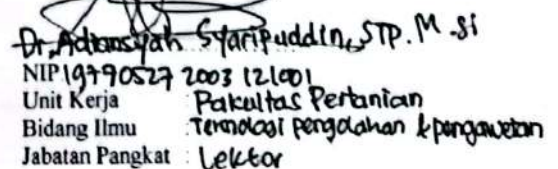 Dr. Adiansyah Syaripuddin, STP. M.Si
NIP 19790527 2003 121001
Unit Kerja : Pakultas Pertanian
Bidang Ilmu : Teknologi pengolahan & pengawetan
Jabatan Pangkat : Lektor